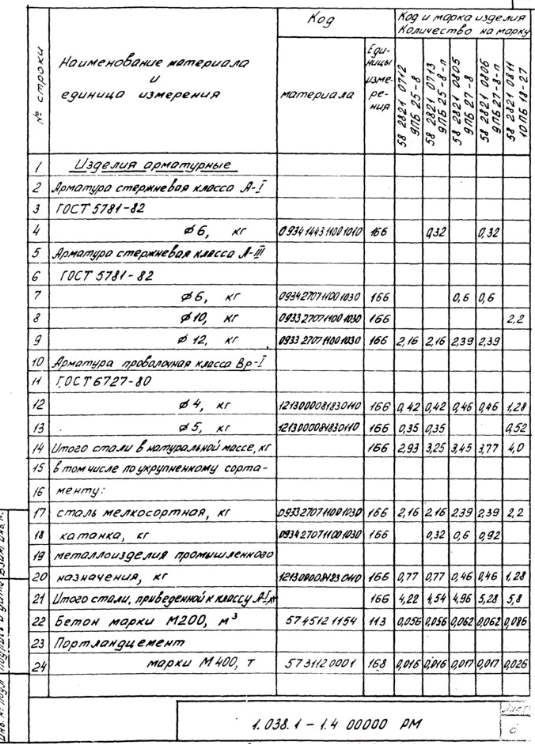 Код
Код и марка изделия
Количество на марку
№ строки
Наименование материала
и
единица измерения
материала
Еди-
ницы
изме-
ре-
ния
58 2821 0712
9ПБ 25-8
58 2821 0713
9ПБ 25-8-п
58 2821 0805
9ПБ 27-8
58 2821 0806
9ПБ 27-8-п
58 2821 0811
10ПБ 18-27
1 Изделия арматурные
2 Арматура стержневая класса А-I
3 ГОСТ 5781-82
4 ø6, кг 09341443 1100 1010 166 0,32 0,32
5 Арматура стержневая класса А-III
6 ГОСТ 5781-82
7 ø6, кг 093427071100 1030 166 0,6 0,6
8 ø10, кг 093327071100 1030 166 2,2
9 ø12, кг 093327071100 1030 166 2,16 2,16 2,39 2,39
10 Арматура проволочная класса Вр-I
11 ГОСТ 6727-80
12 ø4, кг 1213000081830110 166 0,42 0,42 0,46 0,46 1,28
13 ø5, кг 1213000081830110 166 0,35 0,35 0,52
14 Итого стали в натуральной массе, кг 166 2,93 3,25 3,45 3,77 4,0
15 в том числе по укрупненному сорта-
16 менту:
17 сталь мелкосортная, кг 093327071100 1030 166 2,16 2,16 2,39 2,39 2,2
18 катанка, кг 093427071100 1030 166 0,32 0,6 0,92
19 металлоизделия промышленного
20 назначения, кг 166 0,77 0,77 0,46 0,46 1,28
21 Итого стали, приведенной к классу А-I, кг 166 4,22 4,54 4,96 5,28 5,8
22 Бетон марки М200, м³ 5745121154 113 0,056 0,056 0,062 0,062 0,086
23 Портландцемент
24 марки М400, т 5731120001 168 0,016 0,016 0,017 0,017 0,026
1.038.1-1.4 00000 РМ
Лист
6